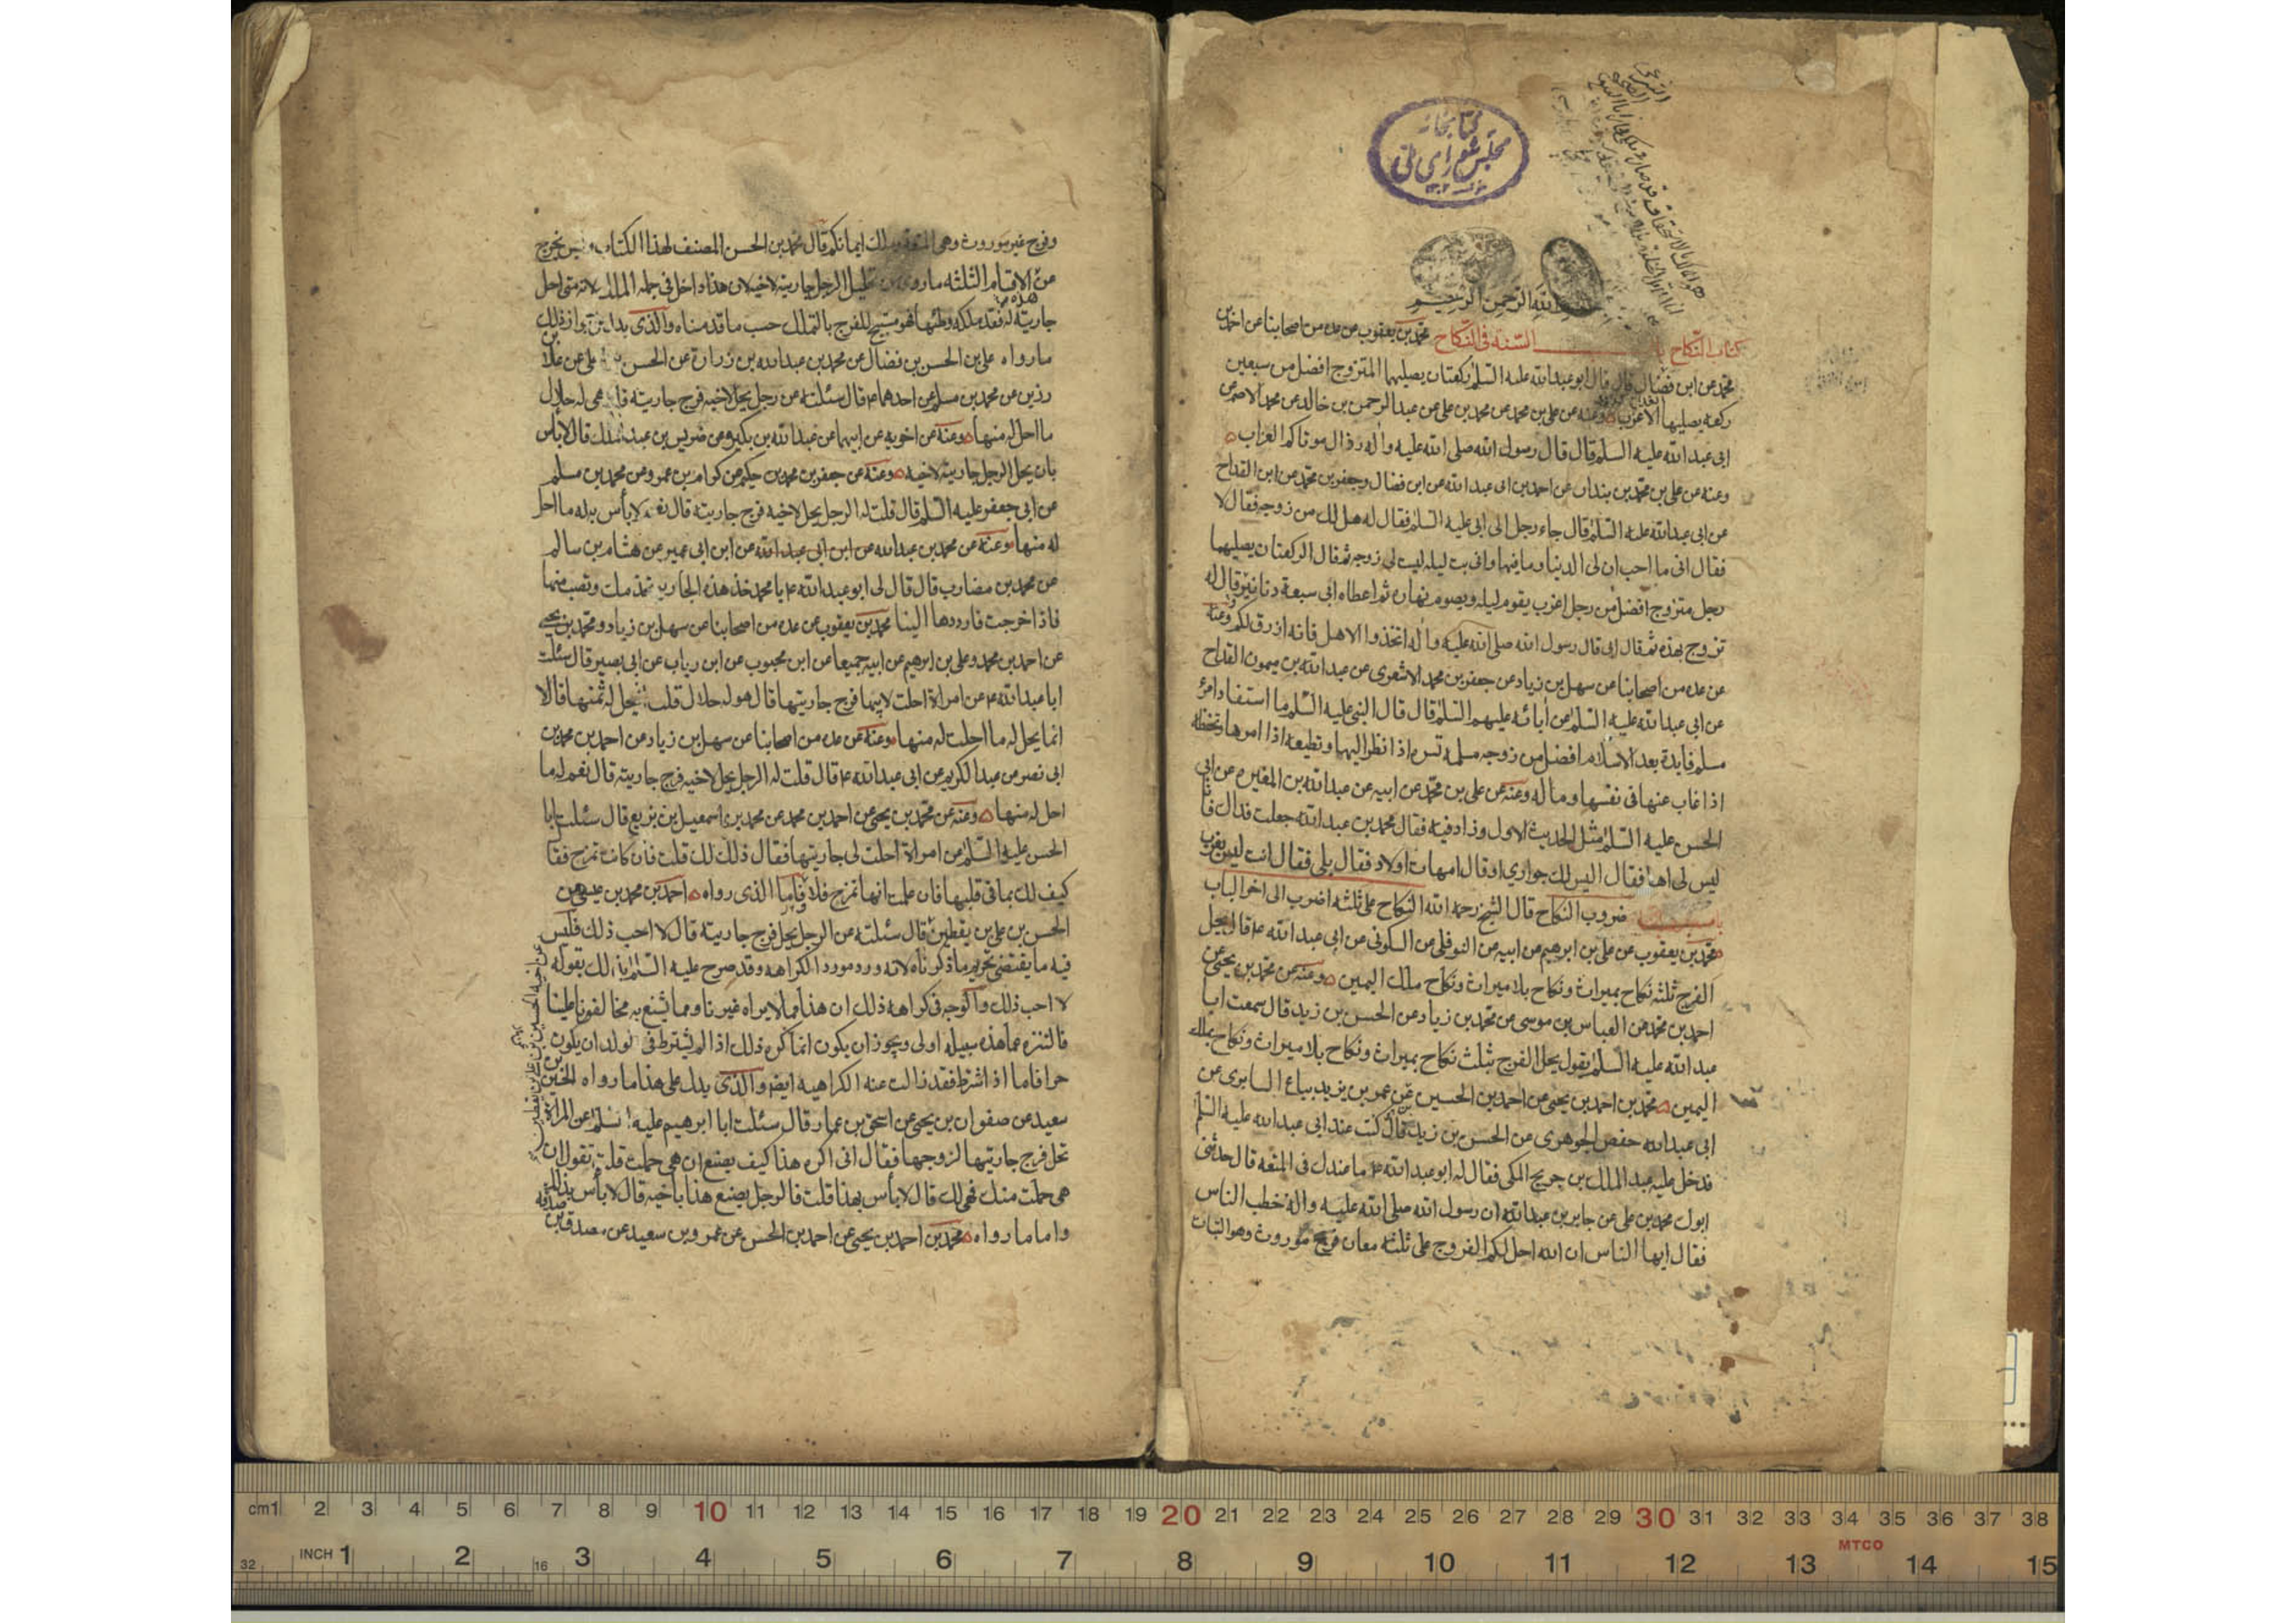 كتابخانه
مجلس شوراى ملى
الله الرحمن الرحيم
كتاب النكاح باب السنه فى النكاح محمد بن يعقوب عن عده من اصحابنا عن احمد بن
محمد عن ابن فضال قال قال ابو عبد الله عليه السلم ركعتان يصليهما المتزوج افضل من سبعين
ركعه يصليها الاعزب وعنه عن على بن محمد عن محمد بن على عن عبد الرحمن بن خالد عن محمد الاصم عن
ابى عبد الله عليه السلم قال قال رسول الله صلى الله عليه واله رذال موتاكم العزاب
وعنه عن على بن محمد بن بندار عن احمد بن ابى عبد الله عن ابن فضال وجعفر بن محمد عن ابن القداح
عن ابى عبد الله عليه السلم قال جاء رجل الى ابى عليه السلم فقال له هل لك من زوجه فقال لا
فقال انى ما احب ان لى الدنيا وما فيها وانى بت ليله ليست لى زوجه ثم قال الركعتان يصليهما
رجل متزوج افضل من رجل اعزب يقوم ليله ويصوم نهاره ثم اعطاه ابى سبعة دنانير قال له
تزوج بهذه ثم قال ابى قال رسول الله صلى الله عليه واله اتخذوا الاهل فانه ارزق لكم وعنه
عن عده من اصحابنا عن سهل بن زياد عن جعفر بن محمد الاشعرى عن عبد الله بن ميمون القداح
عن ابى عبد الله عليه السلم عن آبائه عليهم السلم قال قال النبى عليه السلم ما استفاد امرؤ
مسلم فايدة بعد الاسلام افضل من زوجه مسلمه تسره اذا نظر اليها وتطيعه اذا امرها وتحفظه
اذا غاب عنها فى نفسها وماله وعنه عن على بن محمد عن ابيه عن عبد الله بن المغيره عن ابى
الحسن عليه السلم مثل الحديث الاول وزاد فيه فقال محمد بن عبد الله جعلت فداك فانا
ليس لى اهل فقال اليس لك جوارى او قال امهات اولاد فقال بلى فقال انت ليس بعزب
باب ضروب النكاح قال الشيخ رحمه الله النكاح على ثلثه اضرب الى اخر الباب
محمد بن يعقوب عن على بن ابرهيم عن ابيه عن النوفلى عن السكونى عن ابى عبد الله ع قال يحل
الفرج ثلثه نكاح بميراث ونكاح بلا ميراث ونكاح ملك اليمين وعنه عن محمد بن يحيى عن
احمد بن محمد عن العباس بن موسى عن محمد بن زياد عن الحسن بن زيد قال سمعت ابا
عبد الله عليه السلم يقول يحل الفرج بثلث نكاح بميراث ونكاح بلا ميراث ونكاح بملك
اليمين محمد بن احمد بن يحيى عن احمد بن الحسين عن عمر بن يزيد بياع السابرى عن
ابى عبد الله حفص الجوهرى عن الحسن بن زيد قال كنت عند ابى عبد الله عليه السلم
فدخل عليه عبد الملك بن جريج المكى فقال له ابو عبد الله ع ما عندك فى المتعه قال حدثنى
ابوك محمد بن على عن جابر بن عبد الله ان رسول الله صلى الله عليه واله خطب الناس
فقال ايها الناس ان الله احل لكم الفروج على ثلثه معان فرج موروث وهو البتات
وفرج غير موروث وهو المتعه وملك ايمانكم قال محمد بن الحسن المصنف لهذا الكتاب وليس يخرج
من الاقسام الثلثه ما روى من تحليل الرجل جاريته لاخيه لان هذا داخل فى جمله الملك لانه متى احل
جاريته له فقد ملكه وطئها فهو مستبيح للفرج بالتملك حسب ما قدمناه والذى يدل على
ما رواه على بن الحسن بن فضال عن محمد بن عبد الله بن زرارة عن الحسن بن على عن علا بن
رزين عن محمد بن مسلم عن احدهما ع قال سئلته عن رجل يحل لاخيه فرج جاريته قال هى له حلال
ما احل له منها وعنه عن اخويه عن ابيهما عن عبد الله بن بكير عن ضريس بن عبد الملك قال لا بأس
بان يحل الرجل جاريته لاخيه وعنه عن جعفر بن محمد بن حكيم عن كرام بن عمرو عن محمد بن مسلم
عن ابى جعفر عليه السلم قال قلت له الرجل يحل لاخيه فرج جاريته قال نعم لا بأس به له ما احل
له منها وعنه عن محمد بن عبد الله عن ابن ابى عبد الله عن ابن ابى عمير عن هشام بن سالم
عن محمد بن مضارب قال قال لى ابو عبد الله ع يا محمد خذ هذه الجاريه تخدمك وتصيب منها
فاذا خرجت فارددها الينا محمد بن يعقوب عن عده من اصحابنا عن سهل بن زياد ومحمد بن يحيى
عن احمد بن محمد وعلى بن ابرهيم عن ابيه جميعا عن ابن محبوب عن ابن رياب عن ابى بصير قال سئلت
ابا عبد الله ع عن امراة احلت لابيها فرج جاريتها قال هو له حلال قلت افيحل له ثمنها قال لا
انما يحل له ما احلت له منها وعنه عن عده من اصحابنا عن سهل بن زياد عن احمد بن محمد بن
ابى نصر عن عبد الكريم عن ابى عبد الله ع قال قلت له الرجل يحل لاخيه فرج جاريته قال نعم له ما
احل له منها وعنه عن محمد بن يحيى عن احمد بن محمد عن محمد بن اسمعيل بن بزيع قال سئلت ابا
الحسن عليه السلم عن امراة احلت لى جاريتها فقال ذلك لك قلت فان كانت تمزح فقال
كيف لك بما فى قلبها فان علمت انها تمزح فلا فاما الذى رواه احمد بن محمد بن عيسى عن
الحسن بن على بن يقطين قال سئلته عن الرجل يحل فرج جاريته قال لا احب ذلك فليس
فيه ما يقتضى تحريم ما ذكرناه لانه ورد مورد الكراهه وقد صرح عليه السلم بذلك بقوله
لا احب ذلك والوجه فى كراهه ذلك ان هذا مما لا يراه غيرنا ومما يشنع به مخالفونا علينا
فالتنزه عما هذه سبيله اولى ويجوز ان يكون انما كره ذلك اذا لم يشترط فى الولد ان يكون
حرا فاما اذا اشترط فقد زالت عنه الكراهيه ايضا والذى يدل على هذا ما رواه الحسين بن
سعيد عن صفوان بن يحيى عن اسحق بن عمار قال سئلت ابا ابرهيم عليه السلم عن المراة
تحل فرج جاريتها لزوجها فقال انى اكره هذا كيف يصنع ان هى حملت قلت تقول ان
هى حملت منك فهى لك قال لا بأس بهذا قلت فالرجل يصنع هذا باخيه قال لا بأس بذلك
واما ما رواه محمد بن احمد بن يحيى عن احمد بن الحسن عن عمرو بن سعيد عن مصدق بن
صدقه
عن اخيه الحسين بن على بن يقطين
cm 1 2 3 4 5 6 7 8 9 10 11 12 13 14 15 16 17 18 19 20 21 22 23 24 25 26 27 28 29 30 31 32 33 34 35 36 37 38
MTCO
32 INCH 1 2 16 3 4 5 6 7 8 9 10 11 12 13 14 15